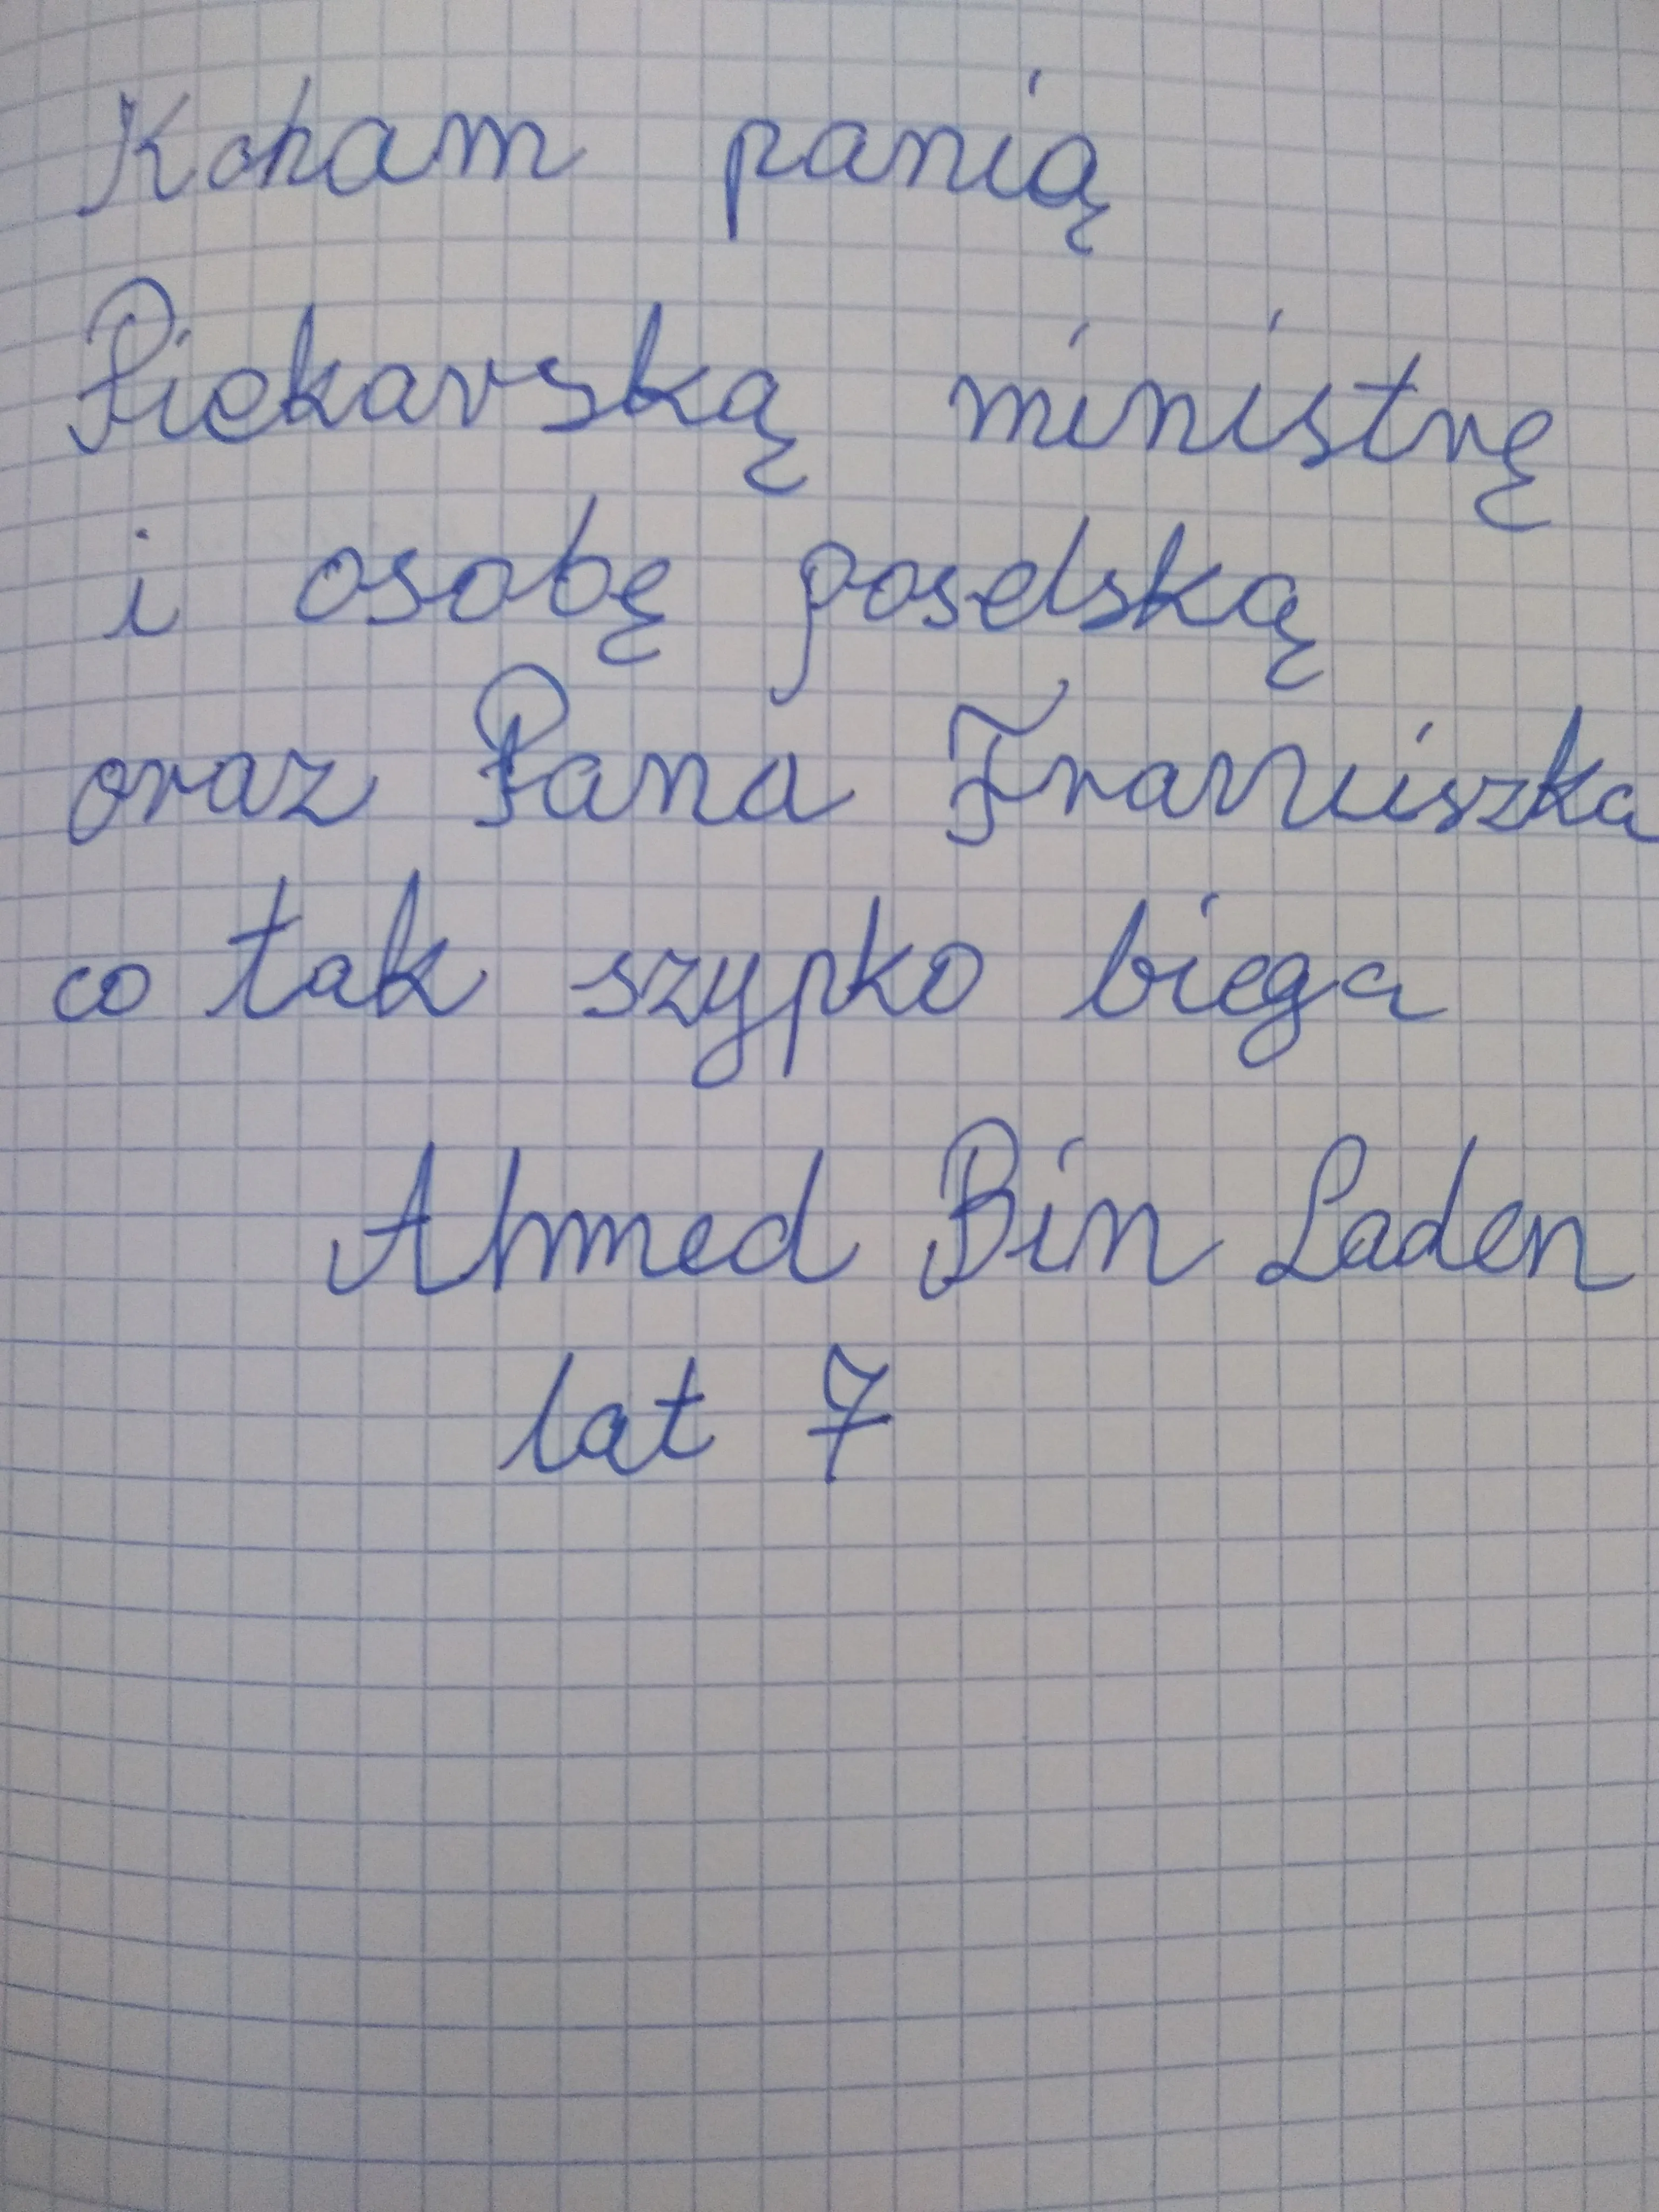 Koham panią
Piekarską ministrę
i osobę poselską
oraz Pana Franciszka
co tak szypko biega
Ahmed Bin Laden
lat 7